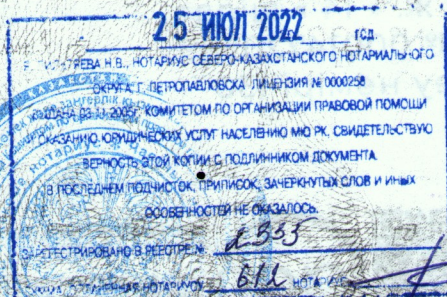 25 ИЮЛ 2022 ГОД.
Н.В., НОТАРИУС СЕВЕРО-КАЗАХСТАНСКОГО НОТАРИАЛЬНОГО
ОКРУГА Г. ПЕТРОПАВЛОВСКА ЛИЦЕНЗИЯ № 0000258
КОМИТЕТОМ ПО ОРГАНИЗАЦИИ ПРАВОВОЙ ПОМОЩИ
ОКАЗАНИЮ ЮРИДИЧЕСКИХ УСЛУГ НАСЕЛЕНИЮ МЮ РК, СВИДЕТЕЛЬСТВУЮ
ВЕРНОСТЬ ЭТОЙ КОПИИ С ПОДЛИННИКОМ ДОКУМЕНТА.
В ПОСЛЕДНЕМ ПОДЧИСТОК, ПРИПИСОК, ЗАЧЕРКНУТЫХ СЛОВ И ИНЫХ
ОСОБЕННОСТЕЙ НЕ ОКАЗАЛОСЬ.
ЗАРЕГЕСТРИРОВАНО В РЕЕСТРЕ № 2353
НОТАРИУСУ 612 НОТАРИУС